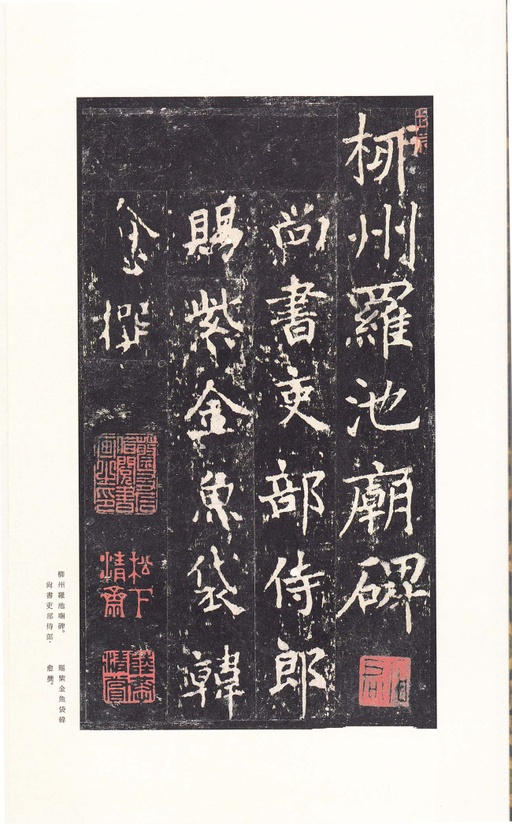 柳州羅池廟碑
尚書吏部侍郎
賜紫金魚袋韓
愈撰
松下
清齋
柳州羅池廟碑。
尚書吏部侍郎、
賜紫金魚袋韓
愈撰。